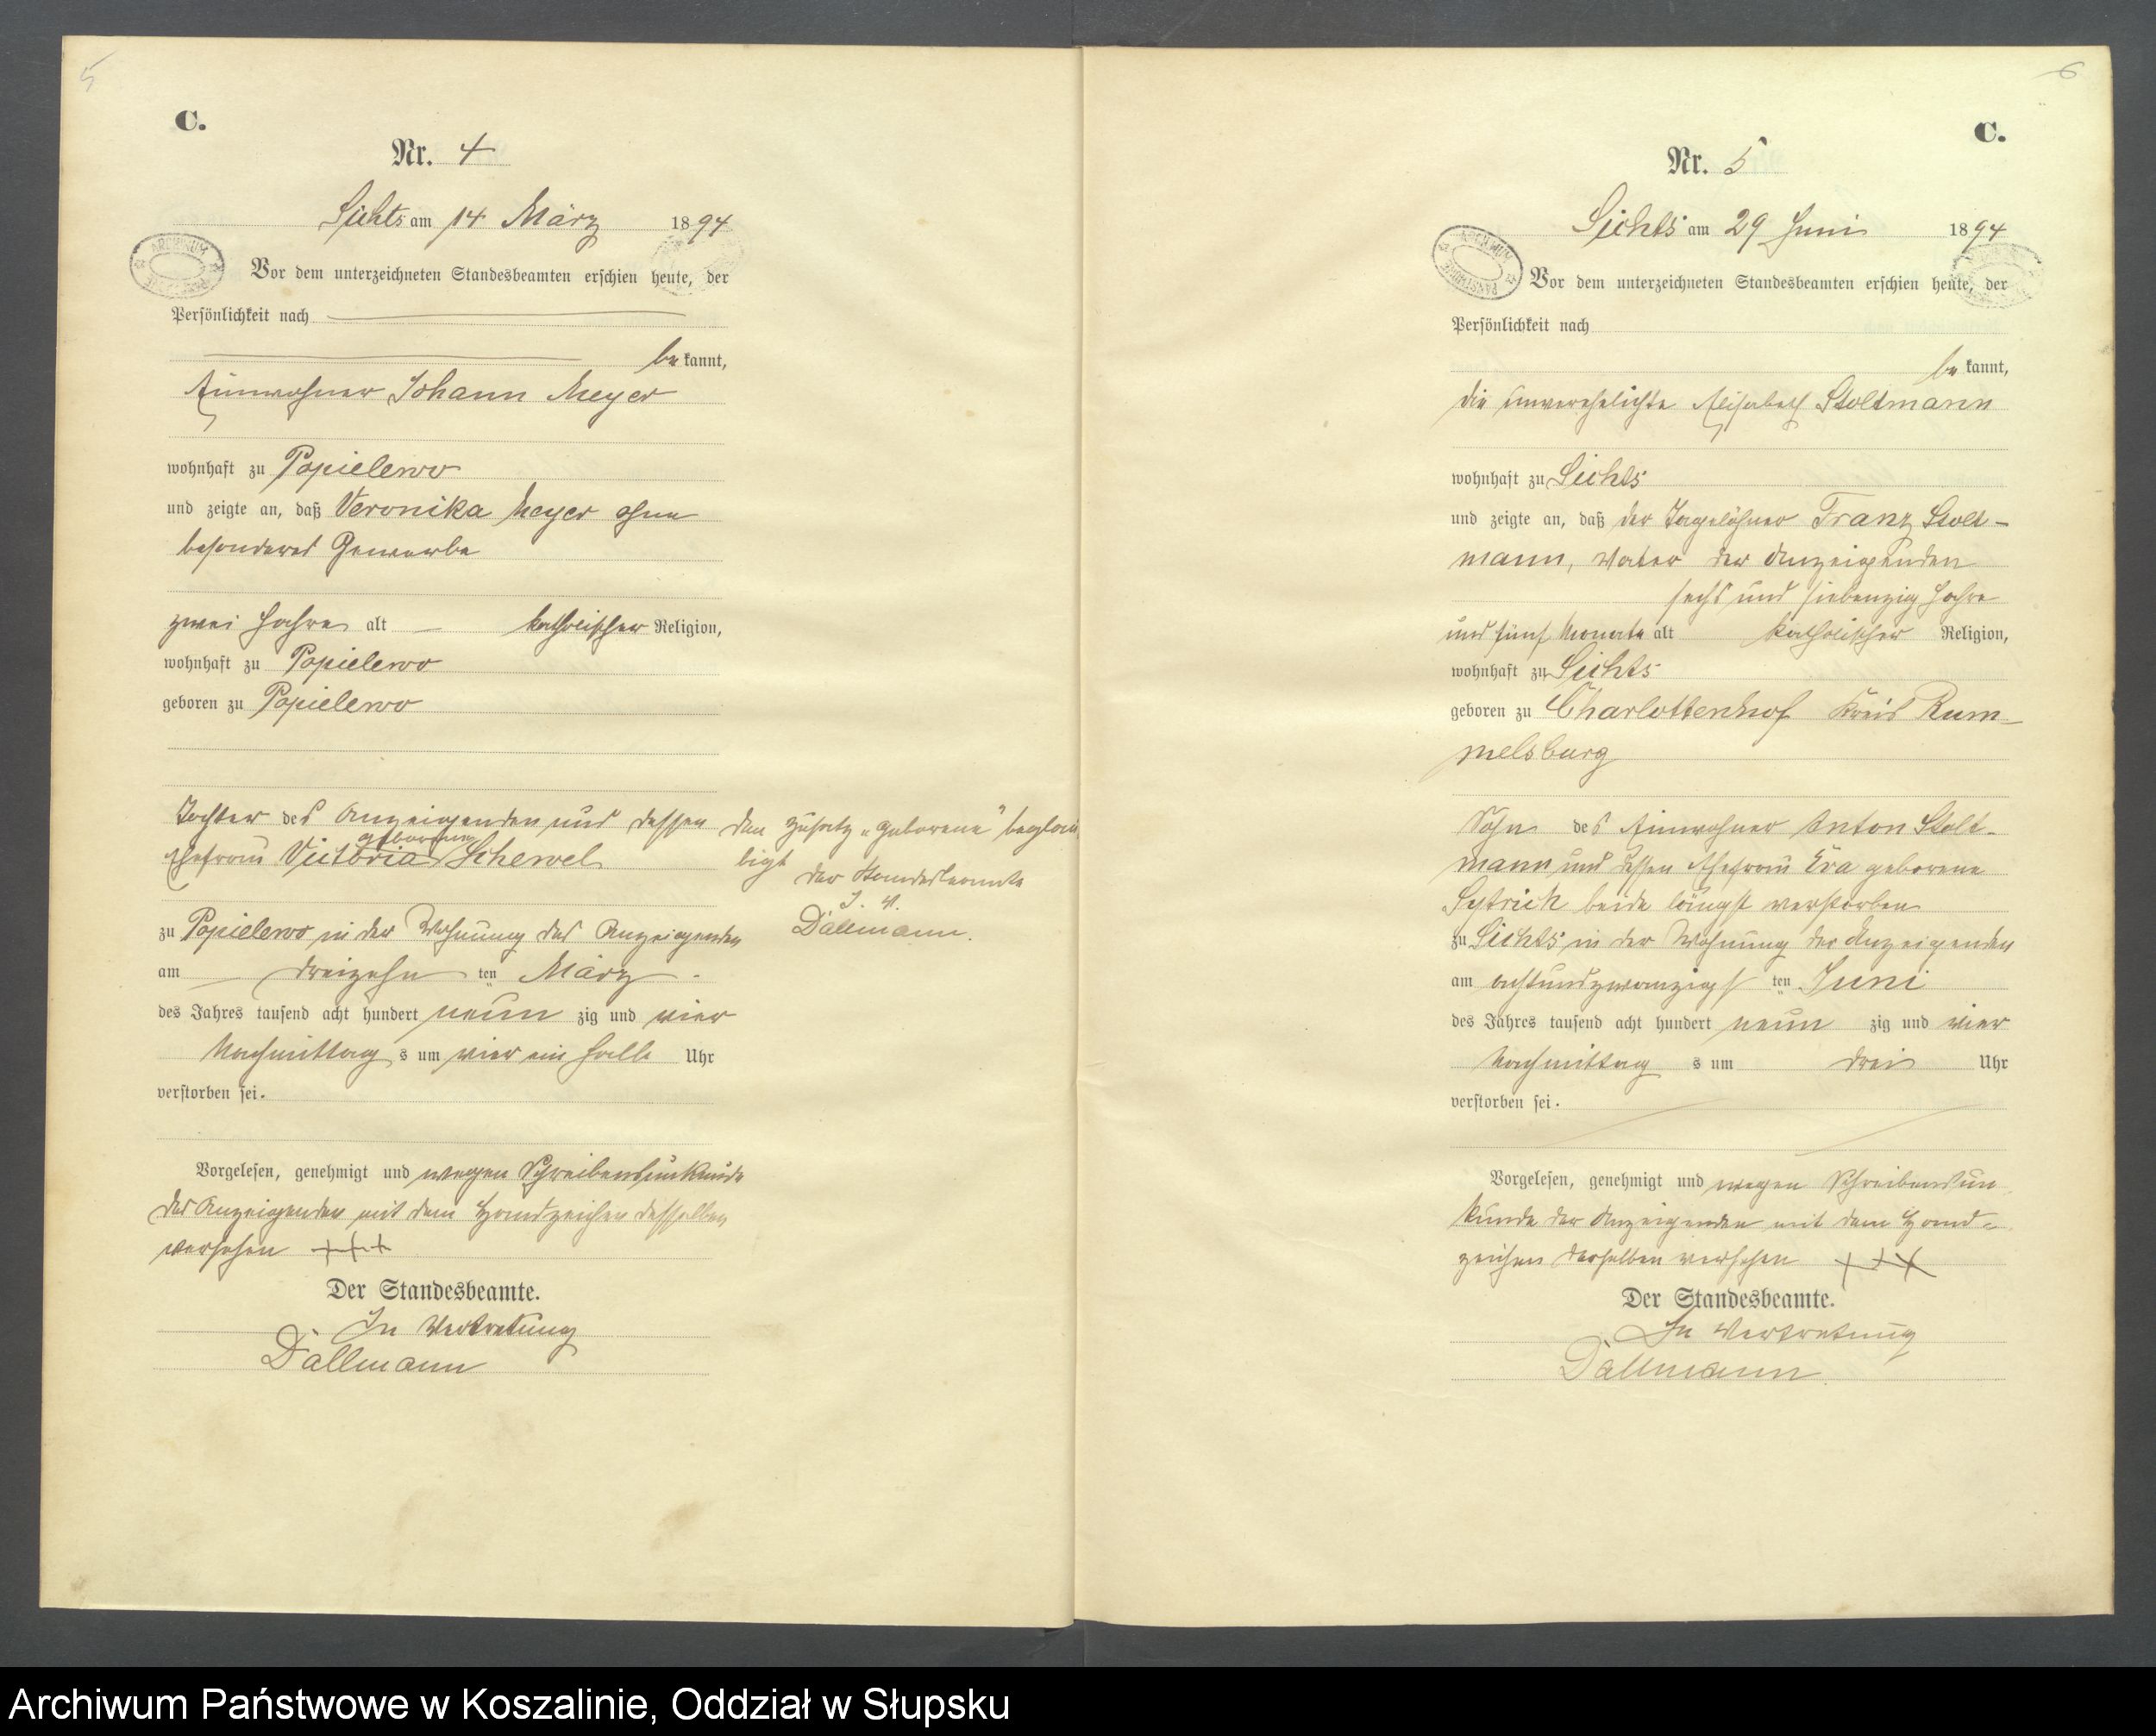 5
C.
Nr. 4
Sichts am 14 März 1894
ARCHIWUM
Vor dem unterzeichneten Standesbeamten erschien heute, der
Persönlichkeit nach
be kannt,
Einwohner Johann Meyer
wohnhaft zu Popielewo
und zeigte an, daß Veronika Meyer ohne
besonderes Gewerbe
zwei Jahre alt katholischer Religion,
wohnhaft zu Popielewo
geboren zu Popielewo
Tochter des Anzeigenden und dessen
geborene
Ehefrau Victoria Schewel
zu Popielewo in der Wohnung des Anzeigenden
am dreizehn ten März
des Jahres tausend acht hundert neun zig und vier
Nachmittag s um vier ein halb Uhr
verstorben sei.
Vorgelesen, genehmigt und wegen Schreibensunkunde
des Anzeigenden mit dem Handzeichen desselben
versehen +++
Der Standesbeamte.
In Vertretung
Dallmann
Den Zusatz „geborene" beglau
bigt
der Standesbeamte
I. V.
Dallmann.
6
C.
Nr. 5
Sichts am 29 Juni 1894
ARCHIWUM PAŃSTWOWE
Vor dem unterzeichneten Standesbeamten erschien heute, der
Persönlichkeit nach
be kannt,
die unverehelichte Elisabeth Stoltmann
wohnhaft zu Sichts
und zeigte an, daß der Tagelöhner Franz Stolt-
mann, Vater der Anzeigenden
sechs und siebenzig Jahre
und fünf Monate alt katholischer Religion,
wohnhaft zu Sichts
geboren zu Charlottenhof Kreis Rum-
melsburg
Sohn des Einwohner Anton Stolt-
mann und dessen Ehefrau Eva geborene
beide längst verstorben
zu Sichts in der Wohnung der Anzeigenden
am achtundzwanzigs ten Juni
des Jahres tausend acht hundert neun zig und vier
Nachmittag s um drei Uhr
verstorben sei.
Vorgelesen, genehmigt und wegen Schreibensun
kunde der Anzeigenden mit dem Hand-
zeichen derselben versehen +++
Der Standesbeamte.
In Vertretung
Dallmann.
Archiwum Państwowe w Koszalinie, Oddział w Słupsku